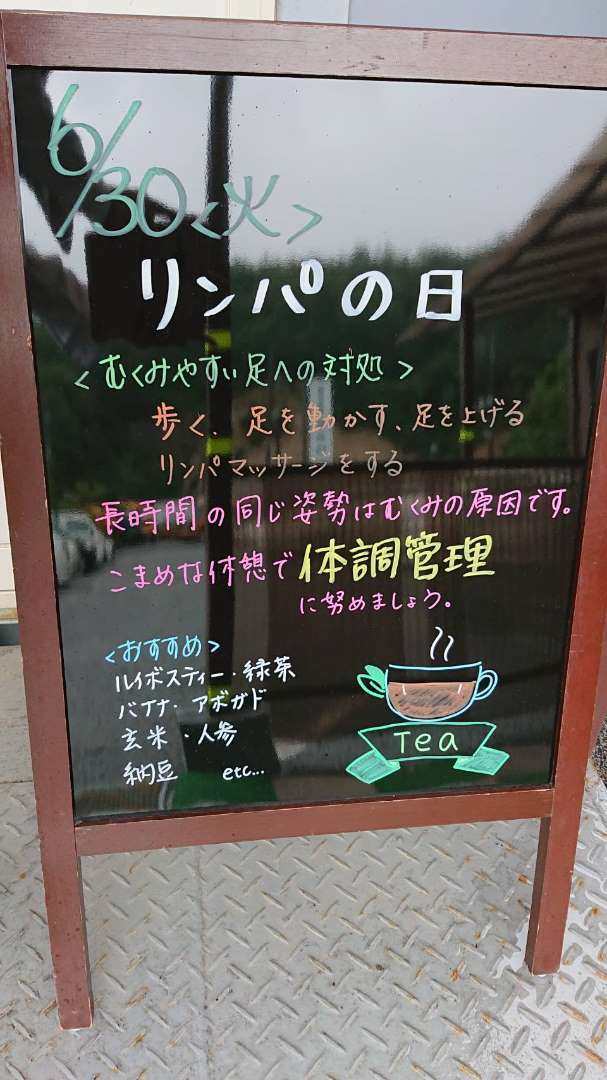 6/30<火>
リンパの日
<むくみやすい足への対処>
歩く、足を動かす、足を上げる
リンパマッサージをする
長時間の同じ姿勢はむくみの原因です。
こまめな休憩で体調管理
に努めましょう。
<おすすめ>
ルイボスティー・緑茶
バナナ・アボガド
玄米・人参
納豆 etc...
Tea